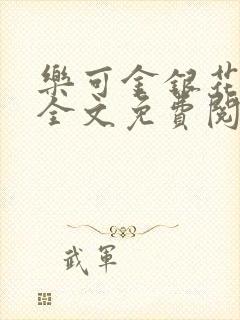 樂可金銀花
全文免費閱
武軍